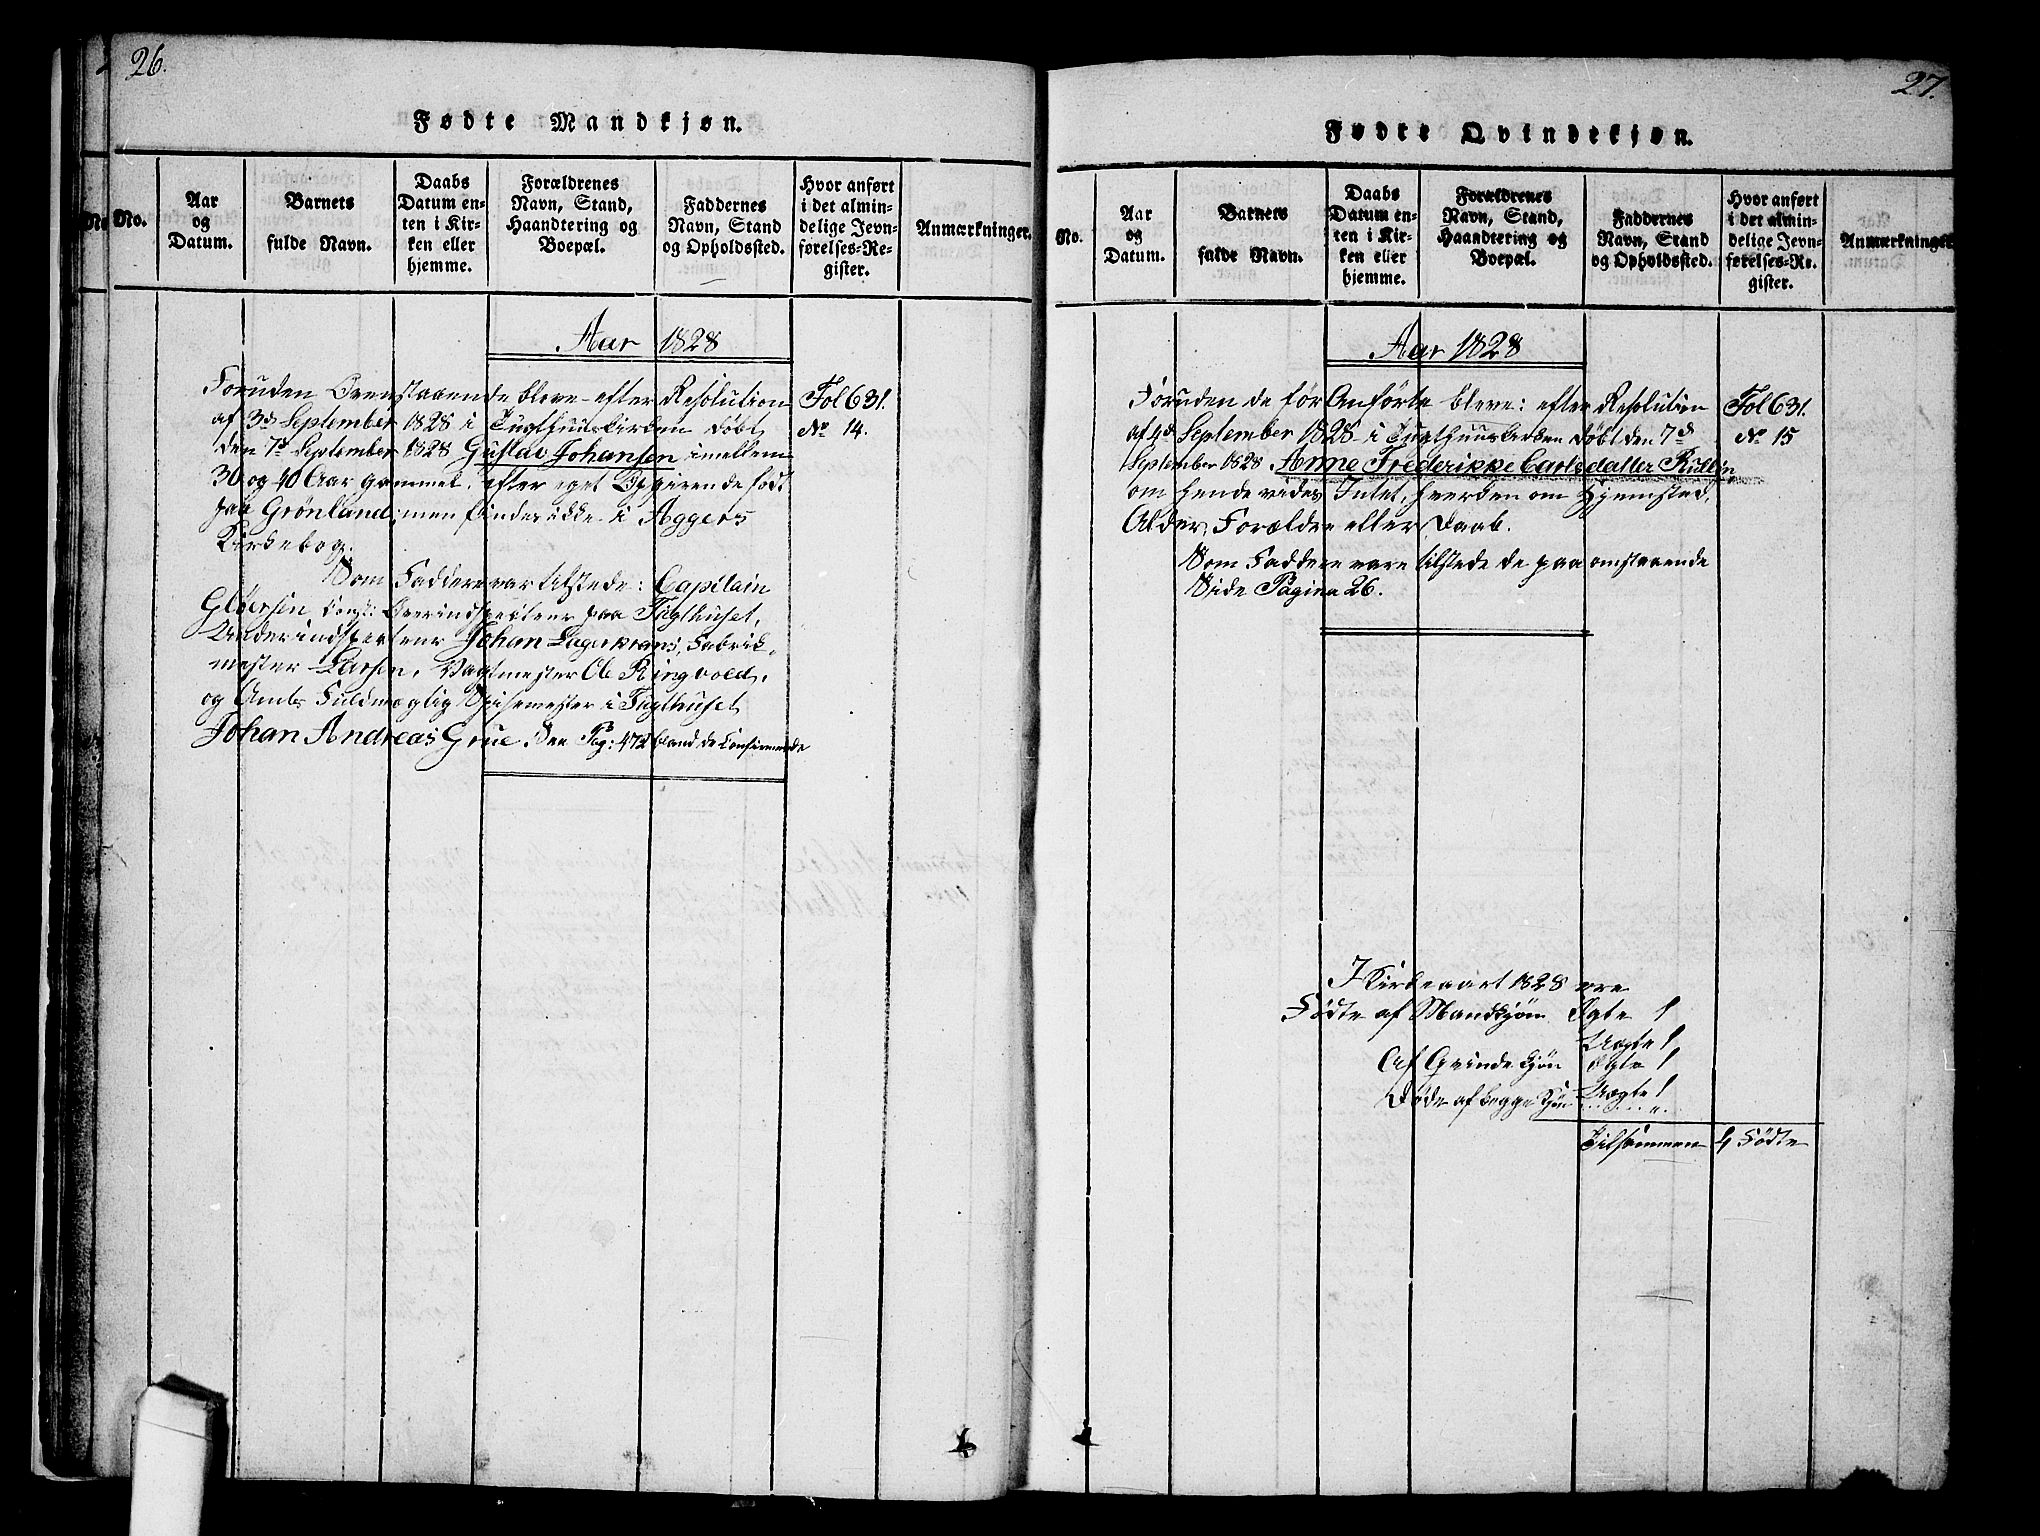 26.
Fødte Mandkjøn.
No.
Aar og Datum.
Barnets fulde Navn.
Daabs Datum enten i Kirken eller hjemme.
Forældrenes Navn, Stand, Haandtering og Boepæl.
Faddernes Navn, Stand og Opholdssted.
Hvor anført i det almindelige Jevnførelses-Register.
Anmærkninger.
Aar 1828
Foruden Ovenstaaende bleve efter Resolution Fol 631.
af 3d September 1828 i Tugthuuskirken døbt No 14.
den 7d September 1828 Gustav Johansen imellem
30 og 40 Aar gammel, efter eget Opgivende født
paa Grønland, men findes ikke i Aggers
Kirkebog.
Som Faddere var tilstede: Capitain
Gløersen, Overinspecteur paa Tugthuset,
Underinspecteur Johan Lagerkrans, Fabrik-
mester Larsen, Vagtmester Ole Ringvold,
og Amts Fuldmægtig Spisemester i Tugthuset
Johan Andreas Grue. See Pag: 472 bland de Confirmerede
27.
Fødte Qvindekjøn.
No.
Aar og Datum.
Barnets fulde Navn.
Daabs Datum enten i Kirken eller hjemme.
Forældrenes Navn, Stand, Haandtering og Boepæl.
Faddernes Navn, Stand og Opholdssted.
Hvor anført i det almindelige Jevnførelses-Register.
Anmærkninger
Aar 1828
Foruden de før Anførte bleve: efter Resolution Fol 631.
af 4d September 1828 i Tugthuuskirken døbt den 7d No 15
September 1828 Anne Frederikke Carlsdatter
om hende vides Intet, hverken om Hjemsted,
Alder, Forældre eller Daab.
Som Faddere vare tilstede de paa omstaaende
Side Pagina 26.
I Kirkeaart 1828 ere
Fødte af Mandkjøn Ægte 1
Uægte 1
Af Qvindekjøn Ægte 1
Uægte 1
Døde af begge Kjøn
Tilsammen 4 Fødte